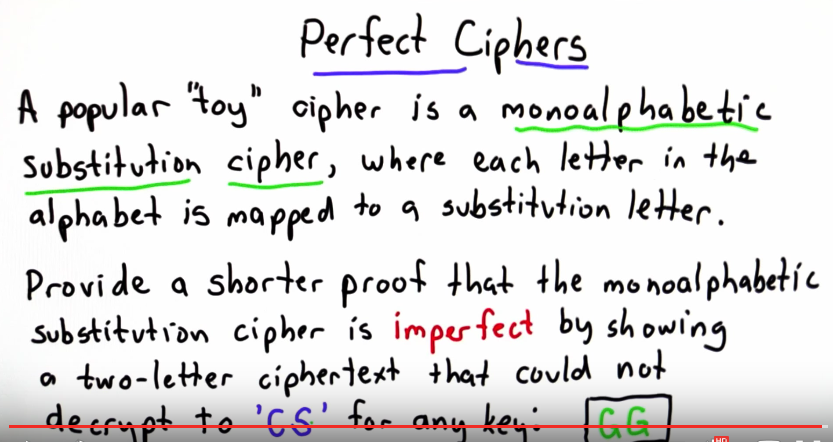 Perfect Ciphers
A popular "toy" cipher is a monoalphabetic
substitution cipher, where each letter in the
alphabet is mapped to a substitution letter.
Provide a shorter proof that the monoalphabetic
substitution cipher is imperfect by showing
a two-letter ciphertext that could not
decrypt to 'CS' for any key: GG
HD